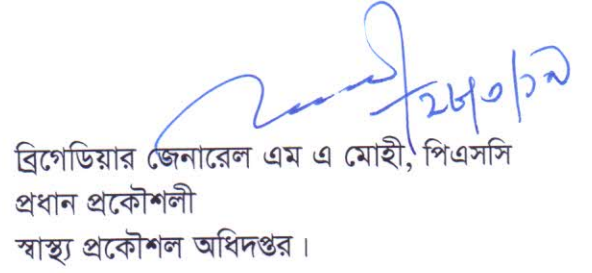 ২৮/৩/১৯
ব্রিগেডিয়ার জেনারেল এম এ মোহী, পিএসসি
প্রধান প্রকৌশলী
স্বাস্থ্য প্রকৌশল অধিদপ্তর।